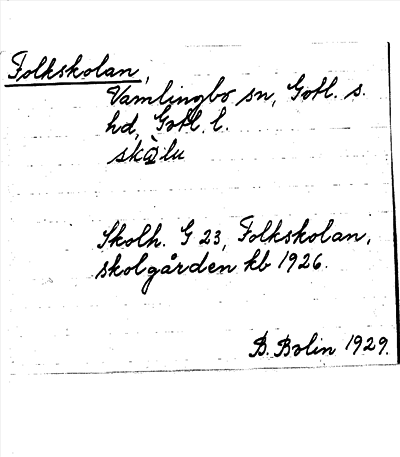 Folkskolan,
Vamlingbo sn, Gotl. s.
hd, Gotl. l.
Skolh. G 23, Folkskolan,
skolgården kb 1926.
B. Bolin 1929.